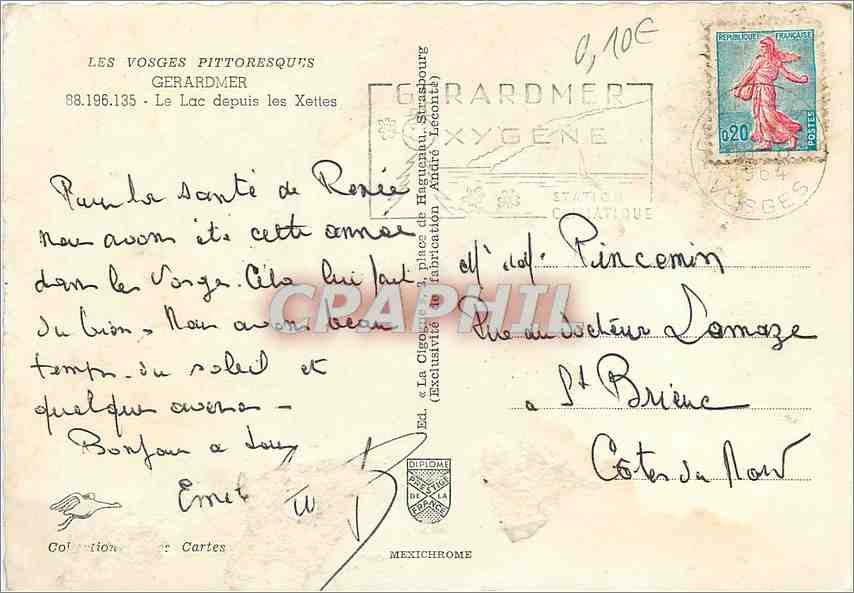 LES VOSGES PITTORESQUES
GERARDMER
88.196.135 - Le Lac depuis les Xettes
0,10€
REPUBLIQUE FRANÇAISE
0,20
POSTES
GERARDMER
OXYGÈNE
STATION
CLIMATIQUE
1964
VOSGES
Pour la santé de Renée
nous avons été cette année
dans les Vosges. Cela lui fait
du bien. Nous avons beau
temps du soleil et
quelques averses -
Bonjour a tous
Ed. « La Cigogne », 3, place de Haguenau, Strasbourg
(Exclusivité de fabrication André Leconte)
CPRAPHIL
Mr Mme Pincemin
Rue du Docteur Lamaze
a St Brieuc
Côtes du Nord
DIPLOME
PRESTIGE
DE LA
FRANCE
Cartes
MEXICHROME